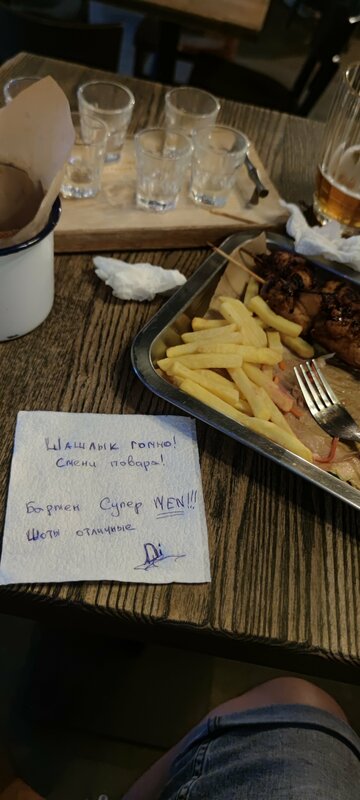 Шашлык говно!
Смени повара!
Бармен Супер MEN!!!
Шоты отличные
Di